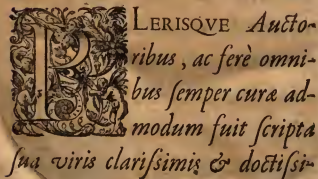 PLERISQVE Aucto-
ribus, ac ferè omni-
bus ſemper curæ ad-
modum fuit ſcripta
ſua viris clariſsimis & doctiſsi-